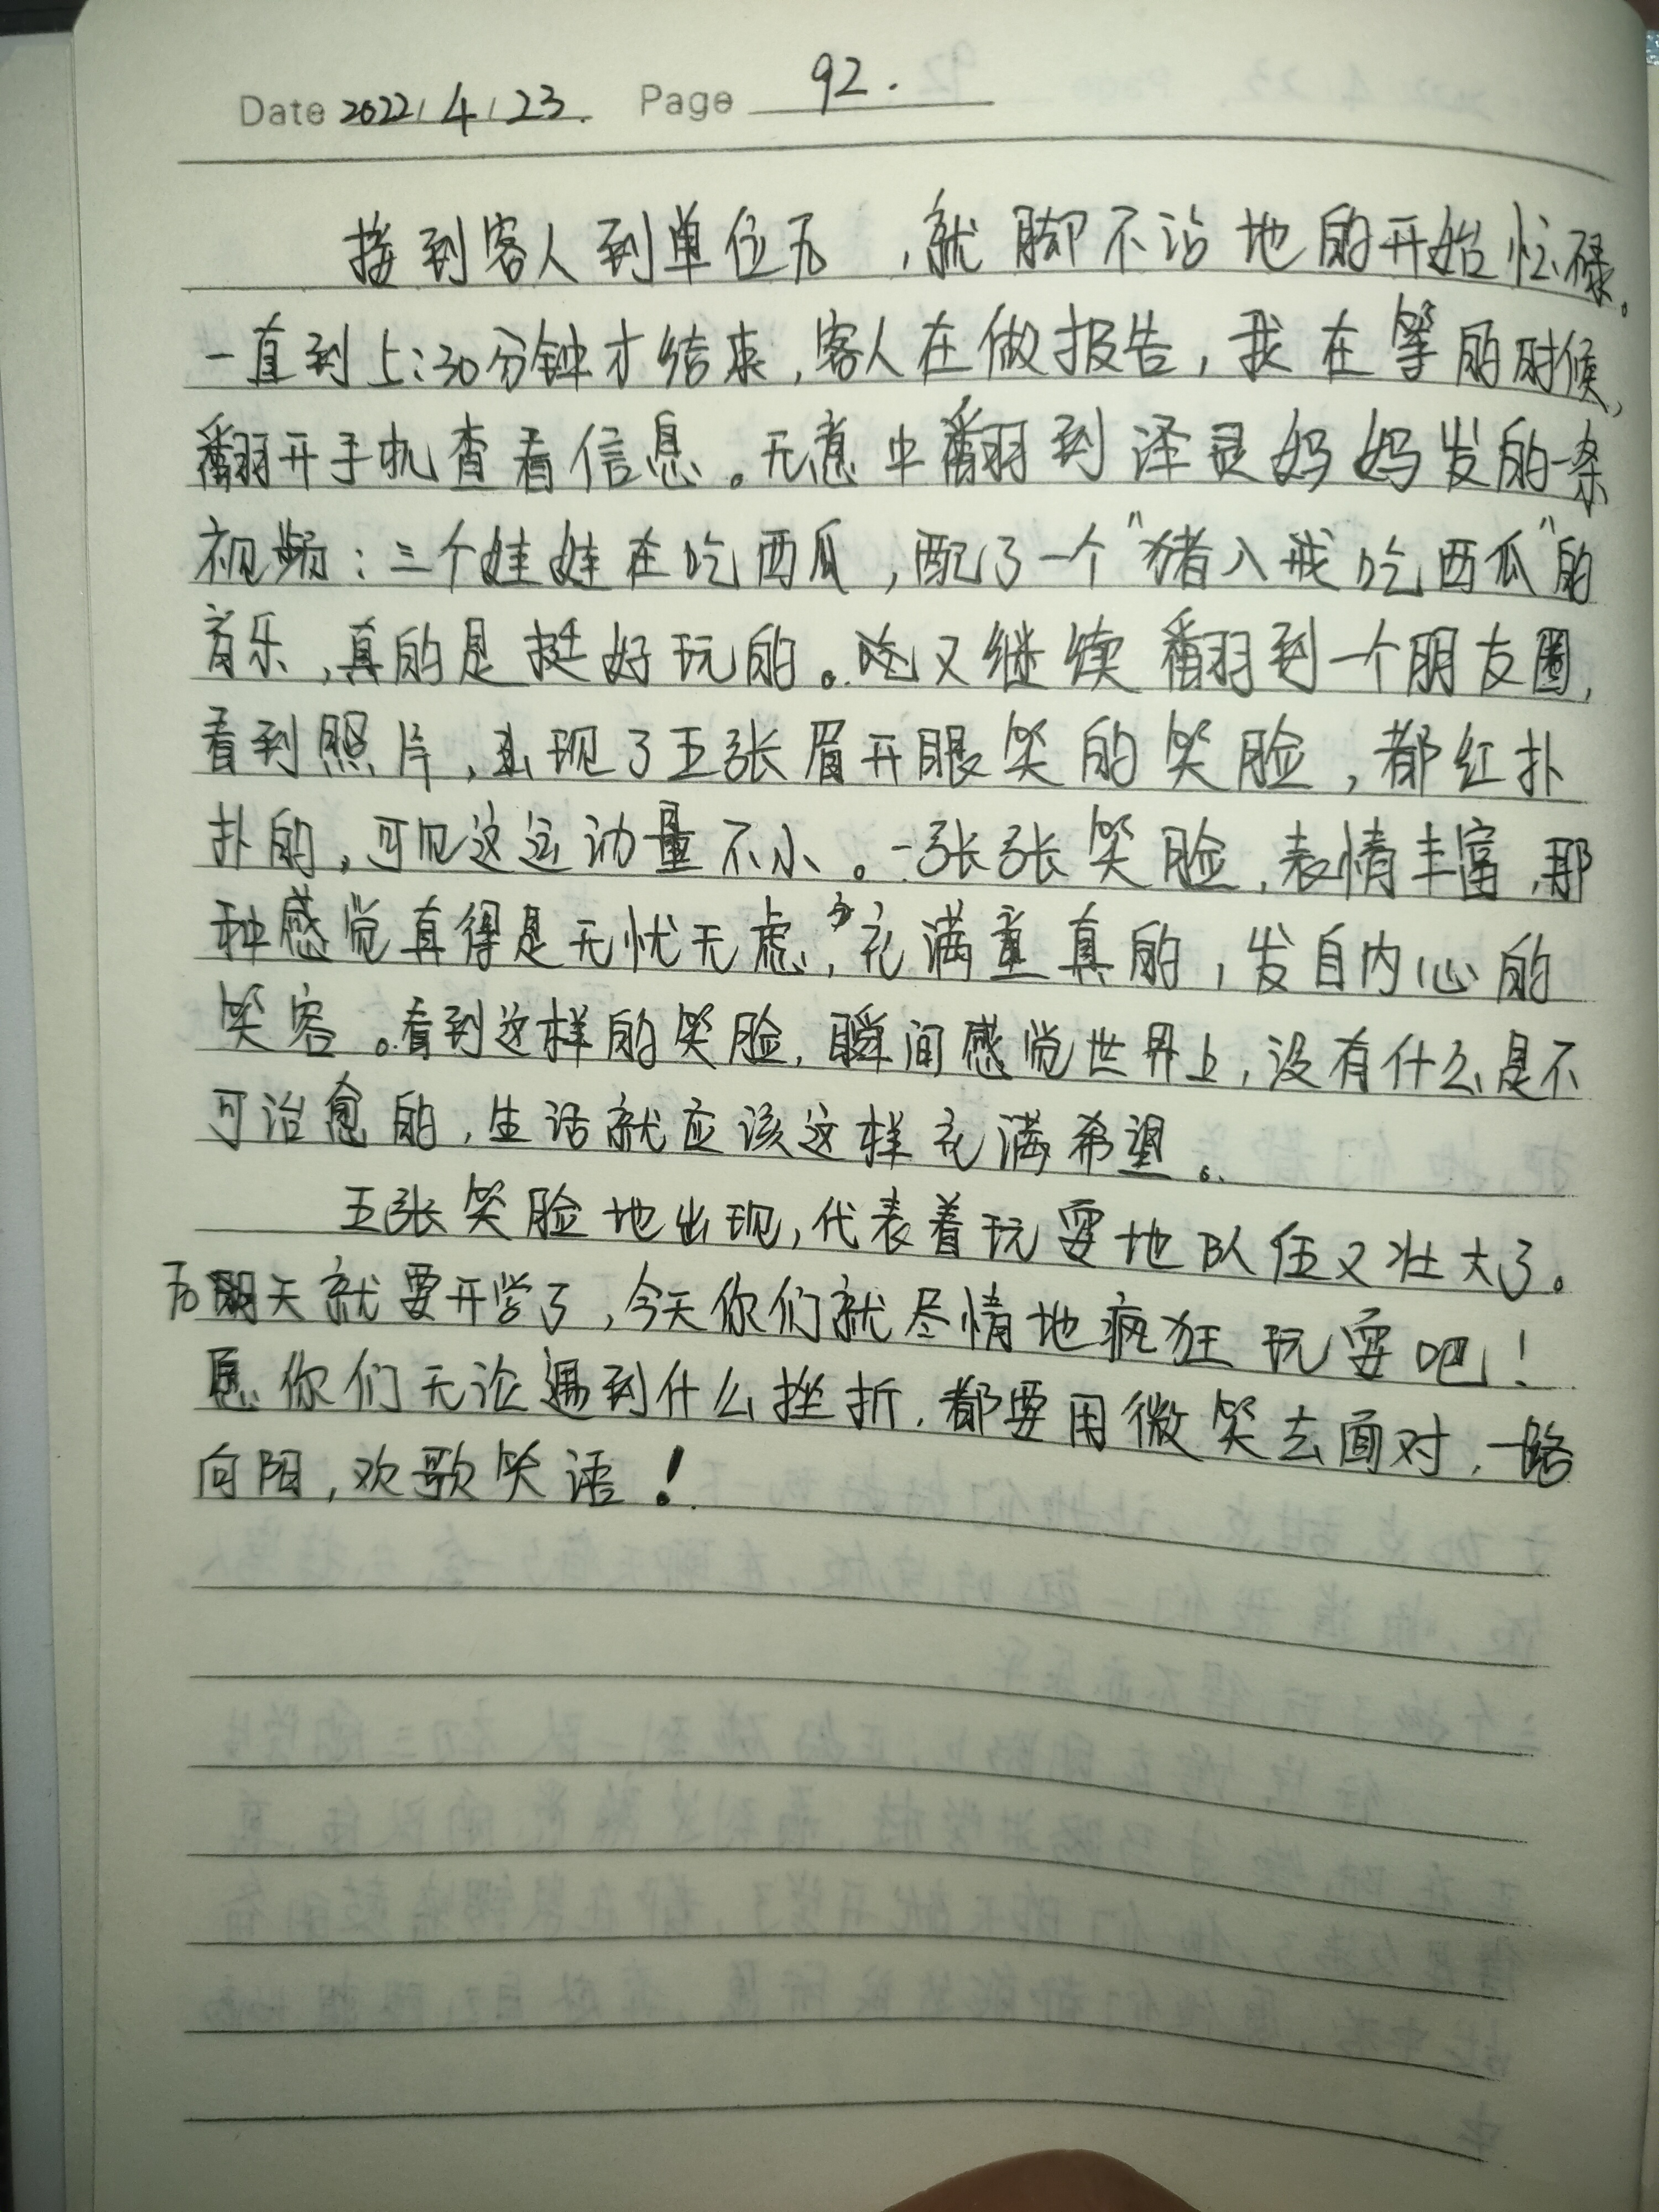 Date 2022/4/23. Page 92.
接到客人到单位后,就脚不沾地的开始忙碌。
一直到5:30分钟才结束,客人在做报告,我在等的时候,
翻开手机查看信息。无意中翻到泽灵妈妈发的一条
视频:三个娃娃在吃西瓜,配了一个"猪八戒吃西瓜"的
音乐,真的是挺好玩的。又继续翻到一个朋友圈,
看到照片,出现了五张眉开眼笑的笑脸,都红扑
扑的,可见这运动量不小。一张张笑脸,表情丰富,那
种感觉真得是无忧无虑,充满童真的,发自内心的
笑容。看到这样的笑脸,瞬间感觉世界上,没有什么是不
可治愈的,生活就应该这样充满希望。
五张笑脸地出现,代表着玩耍地队伍又壮大了。
后天就要开学了,今天你们就尽情地疯狂玩耍吧!
愿你们无论遇到什么挫折,都要用微笑去面对,一路
向阳,欢歌笑语!